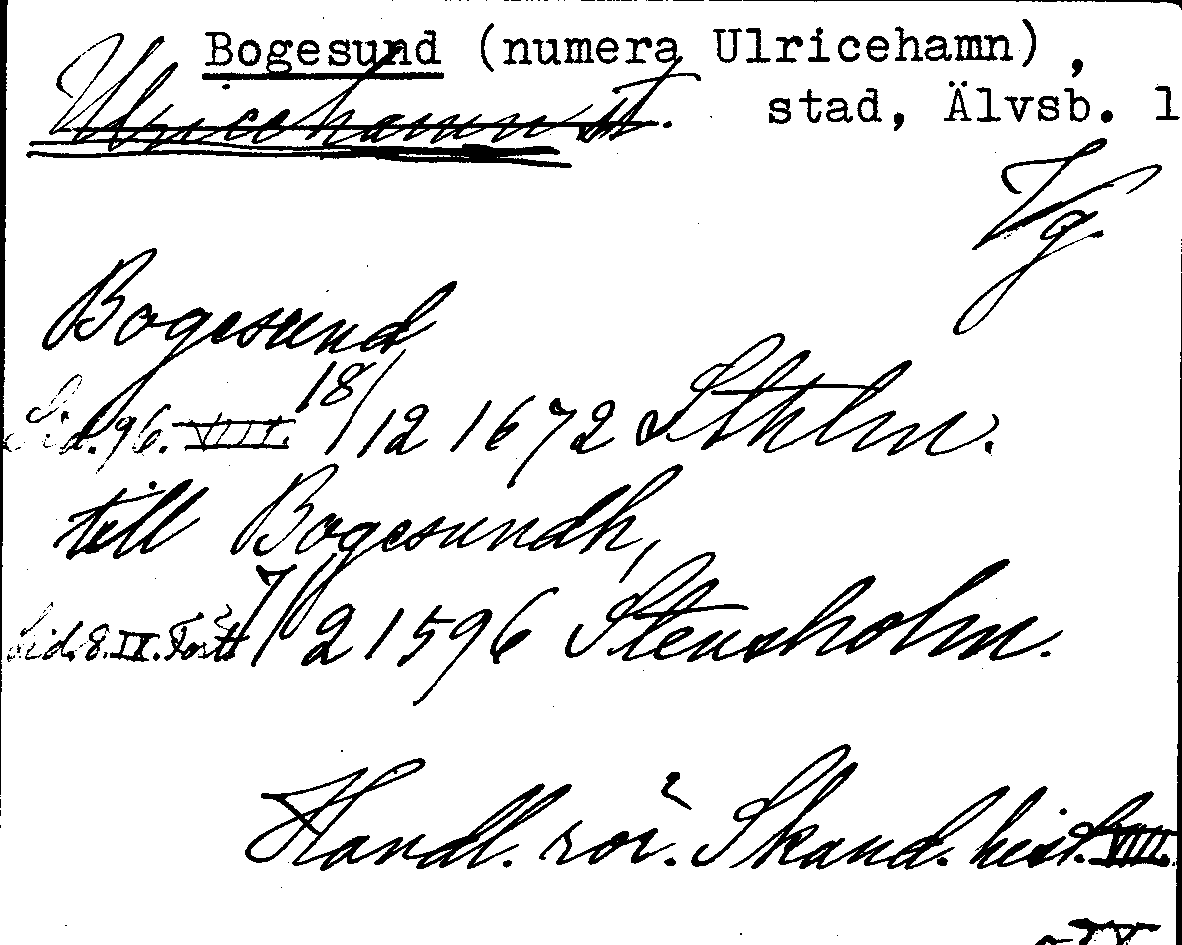 Bogesund (numera Ulricehamn),
Ulricehamn st. stad, Älvsb. l
Vg.
Bogesund
Sid. 96. VIII. 18/12 1672 Sthlm.
till Bogesundh,
Sid. 8. IX. 7/2 1596 Stensholm.
Handl. rör. Skand. hist. VIII.
o IX